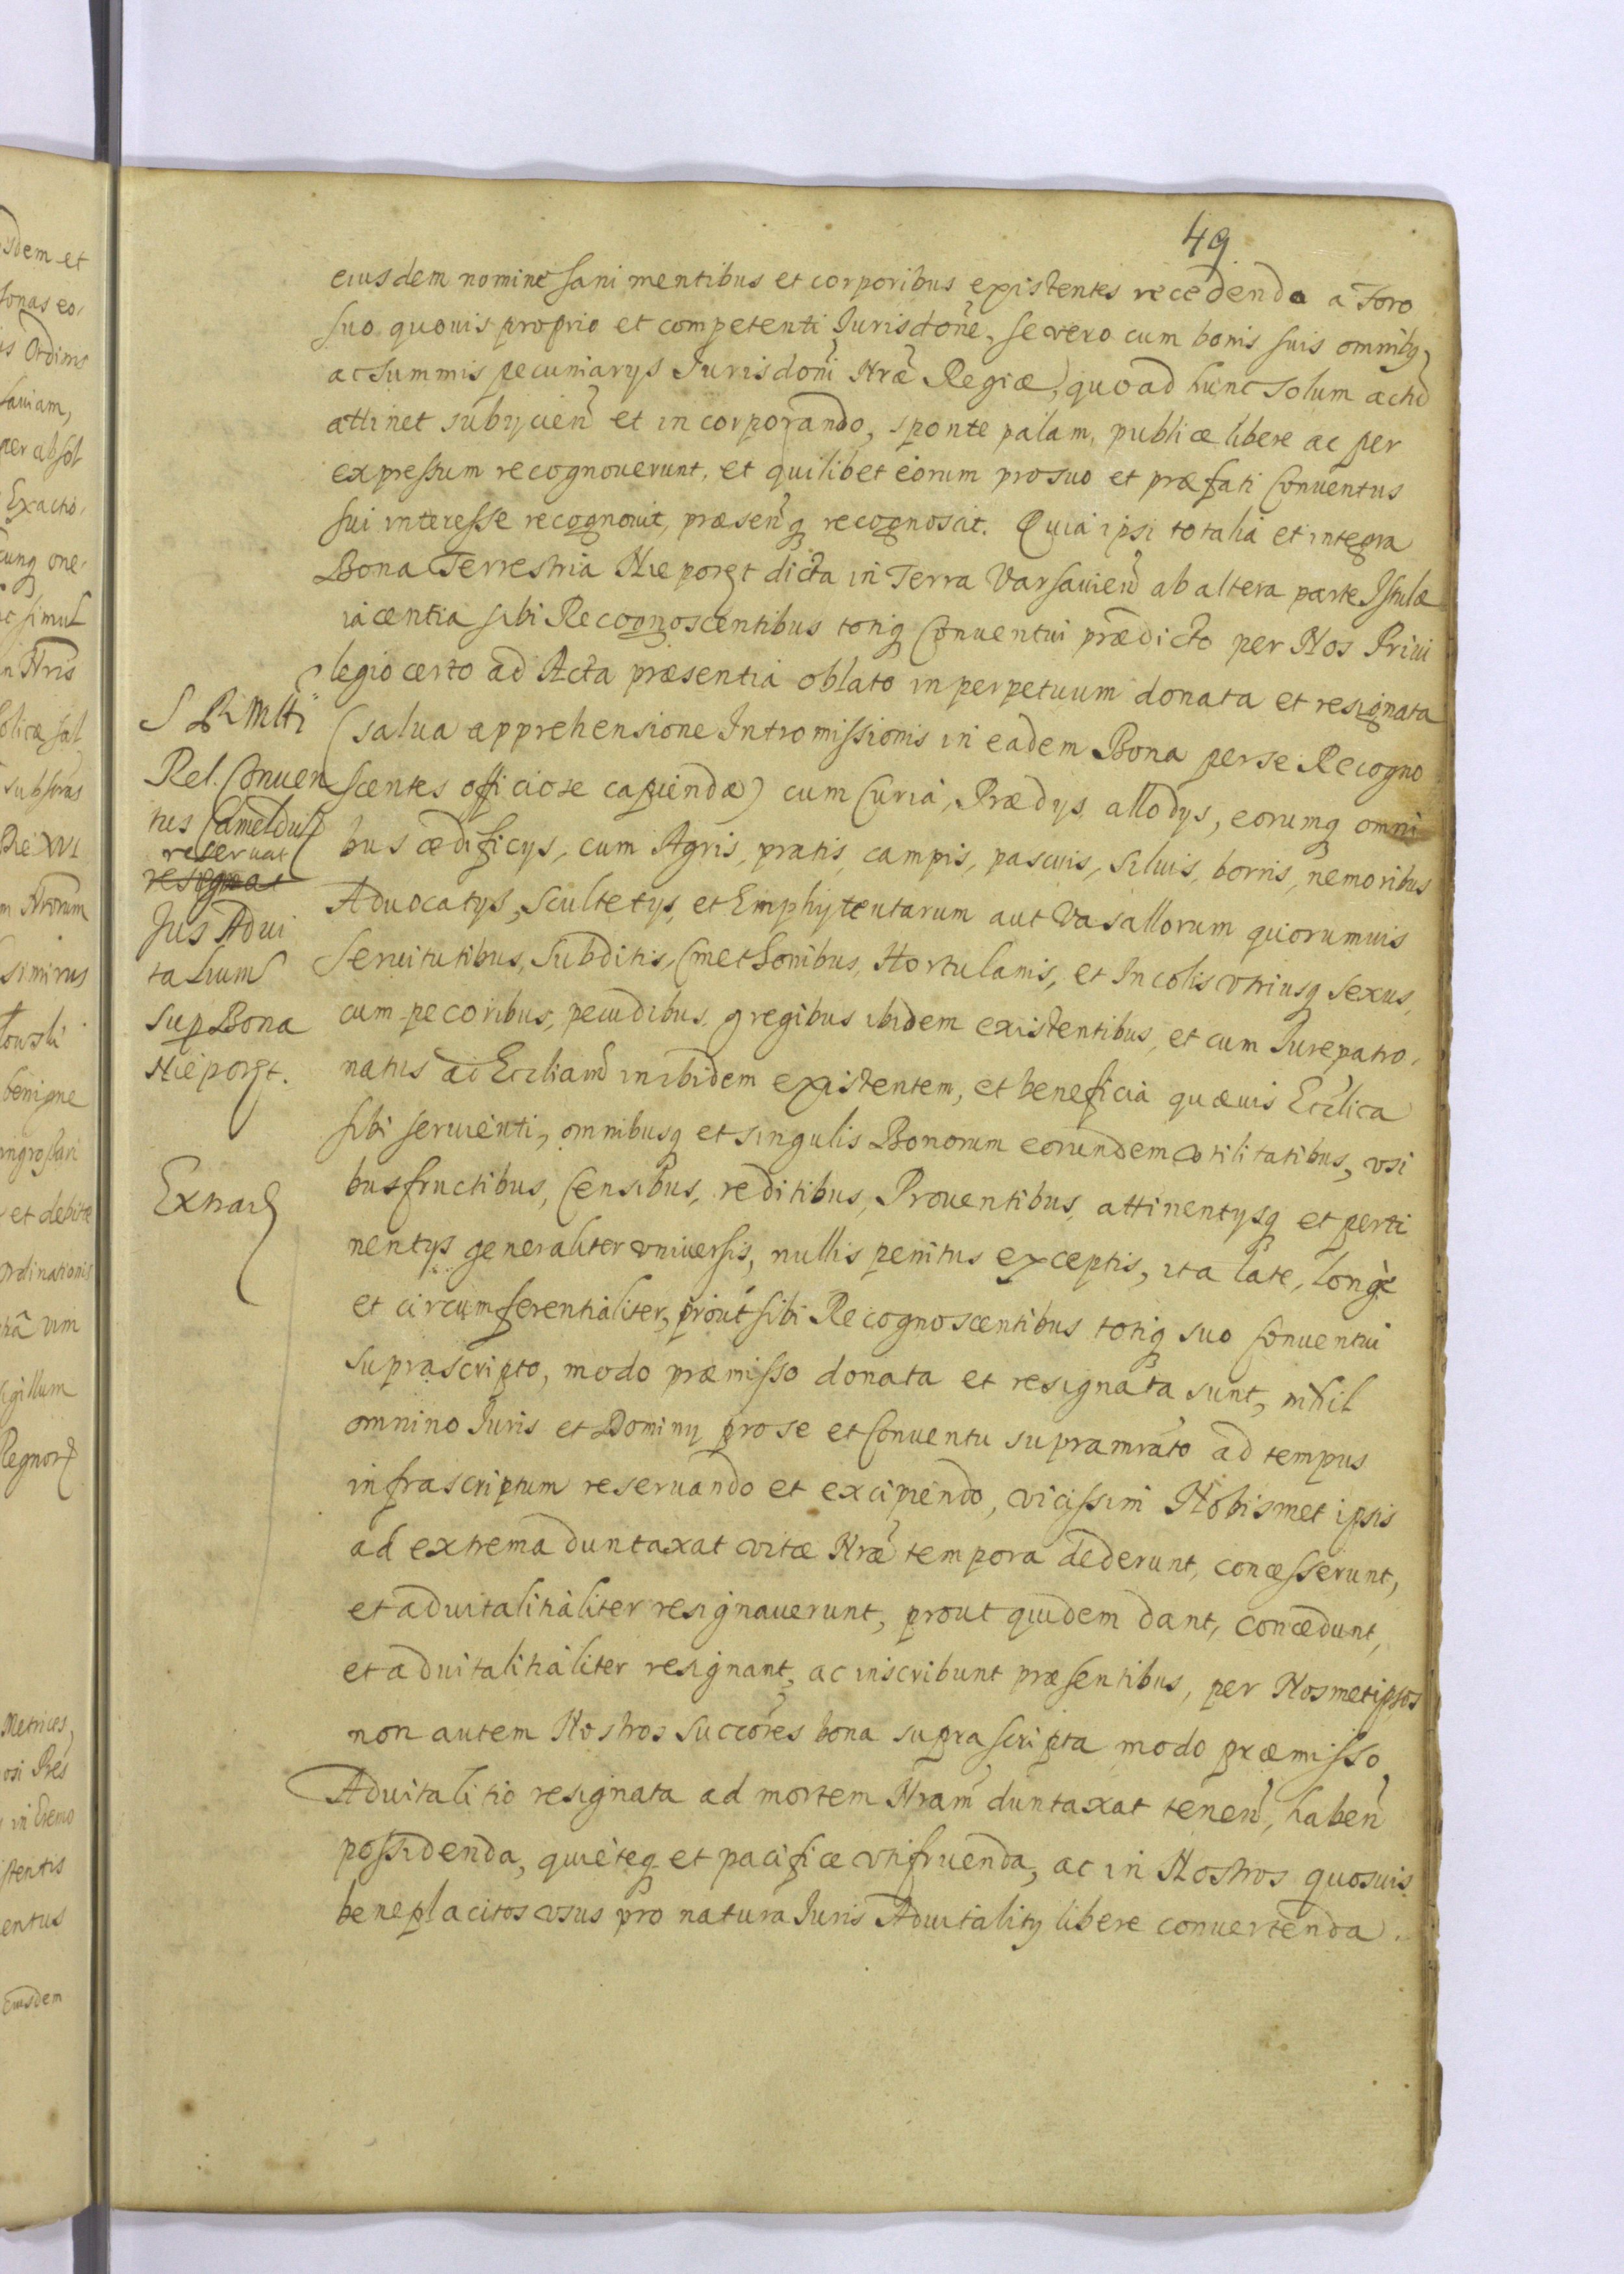 49
eiusdem nomine sani mentibus et corporibus existentes recedendo a Foro
suo quouis proprio et competenti Jurisdone, se vero cum bonis suis omnibq
ac summis pecuniarys Jurisdoni Nræ Regiæ, quoad hunc solum actu
attinet subycien et incorporando, sponte palam, publice libere ac per
expressum recognouerunt, et quilibet eorum pro suo et præfati Conuentus
sui interesse recognouit, præsenq recognoscit. Quia ipsi totalia et integra
Bona Terrestria Nieporęt dicta in Terra Varsauien ab altera parte Istulæ
iacentia sibi Recognoscentibus totiq Conuentui prædicto per Nos Priui
legio certo ad Acta præsentia oblato in perpetuum donata et resignata
(salua apprehensione Intromissionis in eadem Bona per se Recogno
scentes officiose capiendæ) cum Curia, Prædys, allodys, eorumq omni
bus ædificys, cum Agris, pratis, campis, pascuis, siluis, borris, nemoribus
Aduocatys, scultetys, et Emphyteutarum aut Vasallorum quorumuis
seruitutibus, Subditis, Cmethonibus, Hortulanis, et Incolis vtriusq sexus,
cum pecoribus, pecudibus, gregibus ibidem existentibus, et cum Jurepatro,
natus ad Eccliam inibidem existentem, et beneficia quæuis Ecclica
sibi seruienti, omnibusq et singulis Bonorum eorundem vtilitatibus, vsi
bus fructibus, Censibus, reditibus, Prouentibus, attinentysq et perti
nentys generaliter vniuersis, nullis penitus exceptis, ita late, longè
et circumferentialiter, prout sibi Recognoscentibus totiq suo Conuentui
suprascripto, modo præmisso donata et resignata sunt, nihil
omnino Juris et Dominy pro se et Conuentu supramrato ad tempus
infrascriptum reseruando et excipiendo, vicissim Nobismet ipsis
ad extrema duntaxat vitæ Nræ tempora dederunt, concesserunt,
et aduitalitialiter resignauerunt, prout quidem dant, concedunt,
et aduitalitialiter resignant, ac inscribunt præsentibus, per Nosmetipsos
non autem Nostros Succores bona suprascripta modo præmisso
Aduitalitio resignata ad mortem Nram duntaxat tenen, haben
possidenda, quieteq et pacifice vtifruenda, ac in Nostros quosuis
beneplacitos vsus pro natura Juris Aduitality libere conuertenda.
S R Mtti
Rel. Conuen
tus Camedul
reseruat
resignat
Jus Adui
talium
sup Bona
Nieporęt.
Extrad